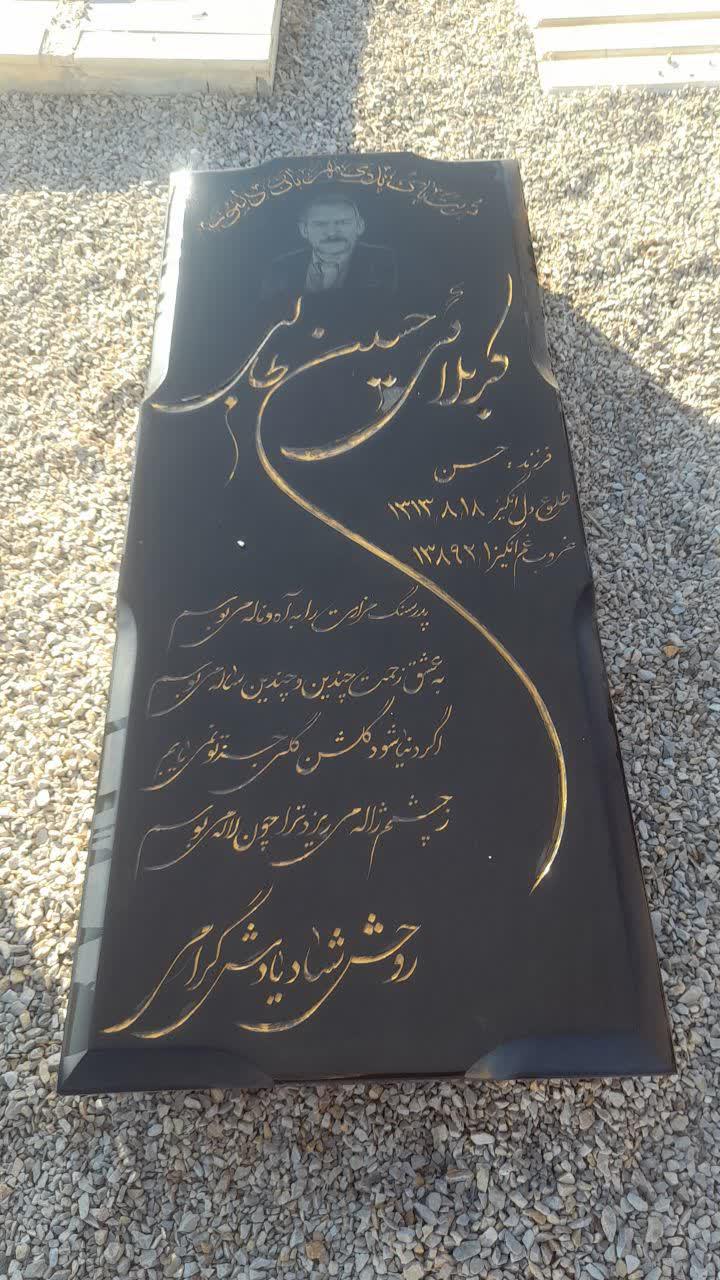 کربلائی حسین طالبی
فرزند: حسن
طلوع دل انگیز ۱۳۱۳٫۸٫۱۸
غروب غم انگیز ۱۳۸۹٫۲٫۱
پدر سنگ مزارت را به آه و ناله می بوسم
به عشق زحمت چندین و چندین ساله می بوسم
اگر دنیا شود گلشن گلی جز تو نمی یابم
ز چشمم ژاله می ریزد ترا چون لاله می بوسم
روحش شاد یادش گرامی